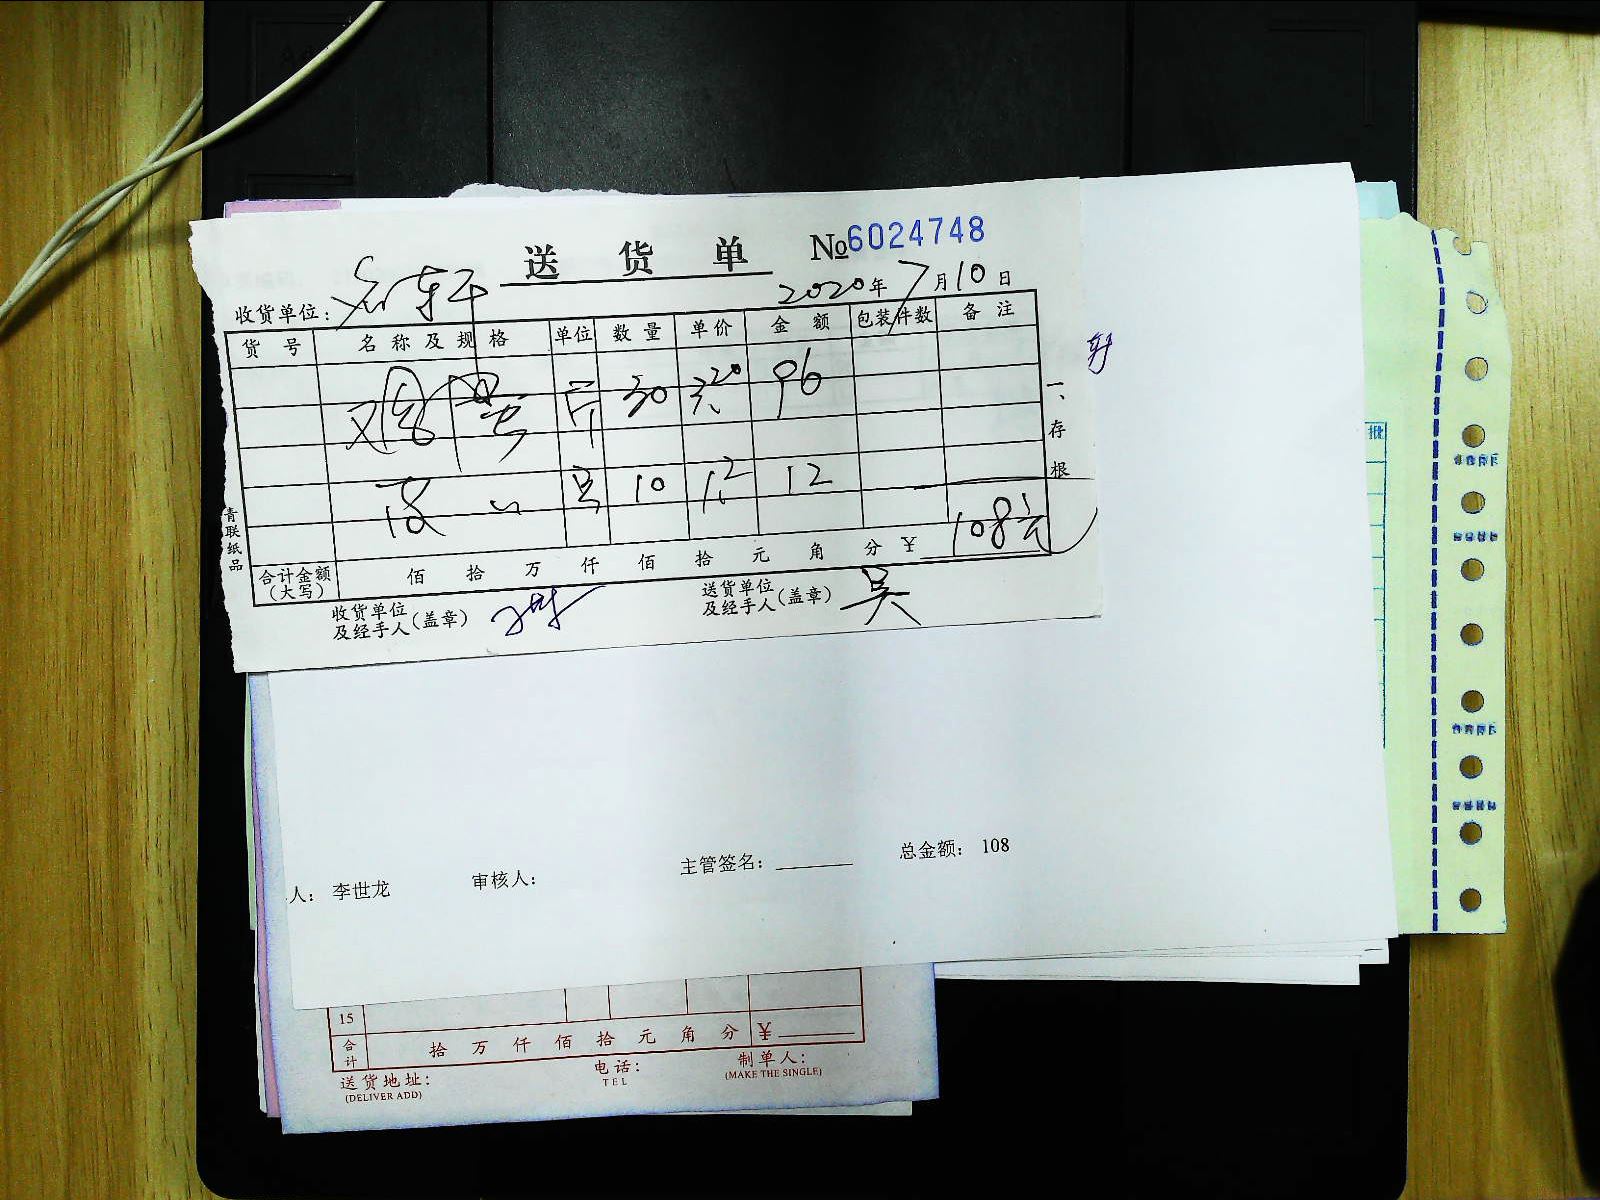 送货单 №6024748
收货单位：
2020年7月10日
货号 名称及规格 单位 数量 单价 金额 包装件数 备注
斤 30 3.20 96
10 1.2 12
合计金额（大写） 佰 拾 万 仟 佰 拾 元 角 分 ¥ 108元
收货单位及经手人（盖章）
送货单位及经手人（盖章） 吴
一、存根
青联纸品
批
人： 李世龙 审核人： 主管签名： 总金额： 108
15
合计 拾 万 仟 佰 拾 元 角 分 ¥
送货地址： 电话： 制单人：
(DELIVER ADD) TEL (MAKE THE SINGLE)